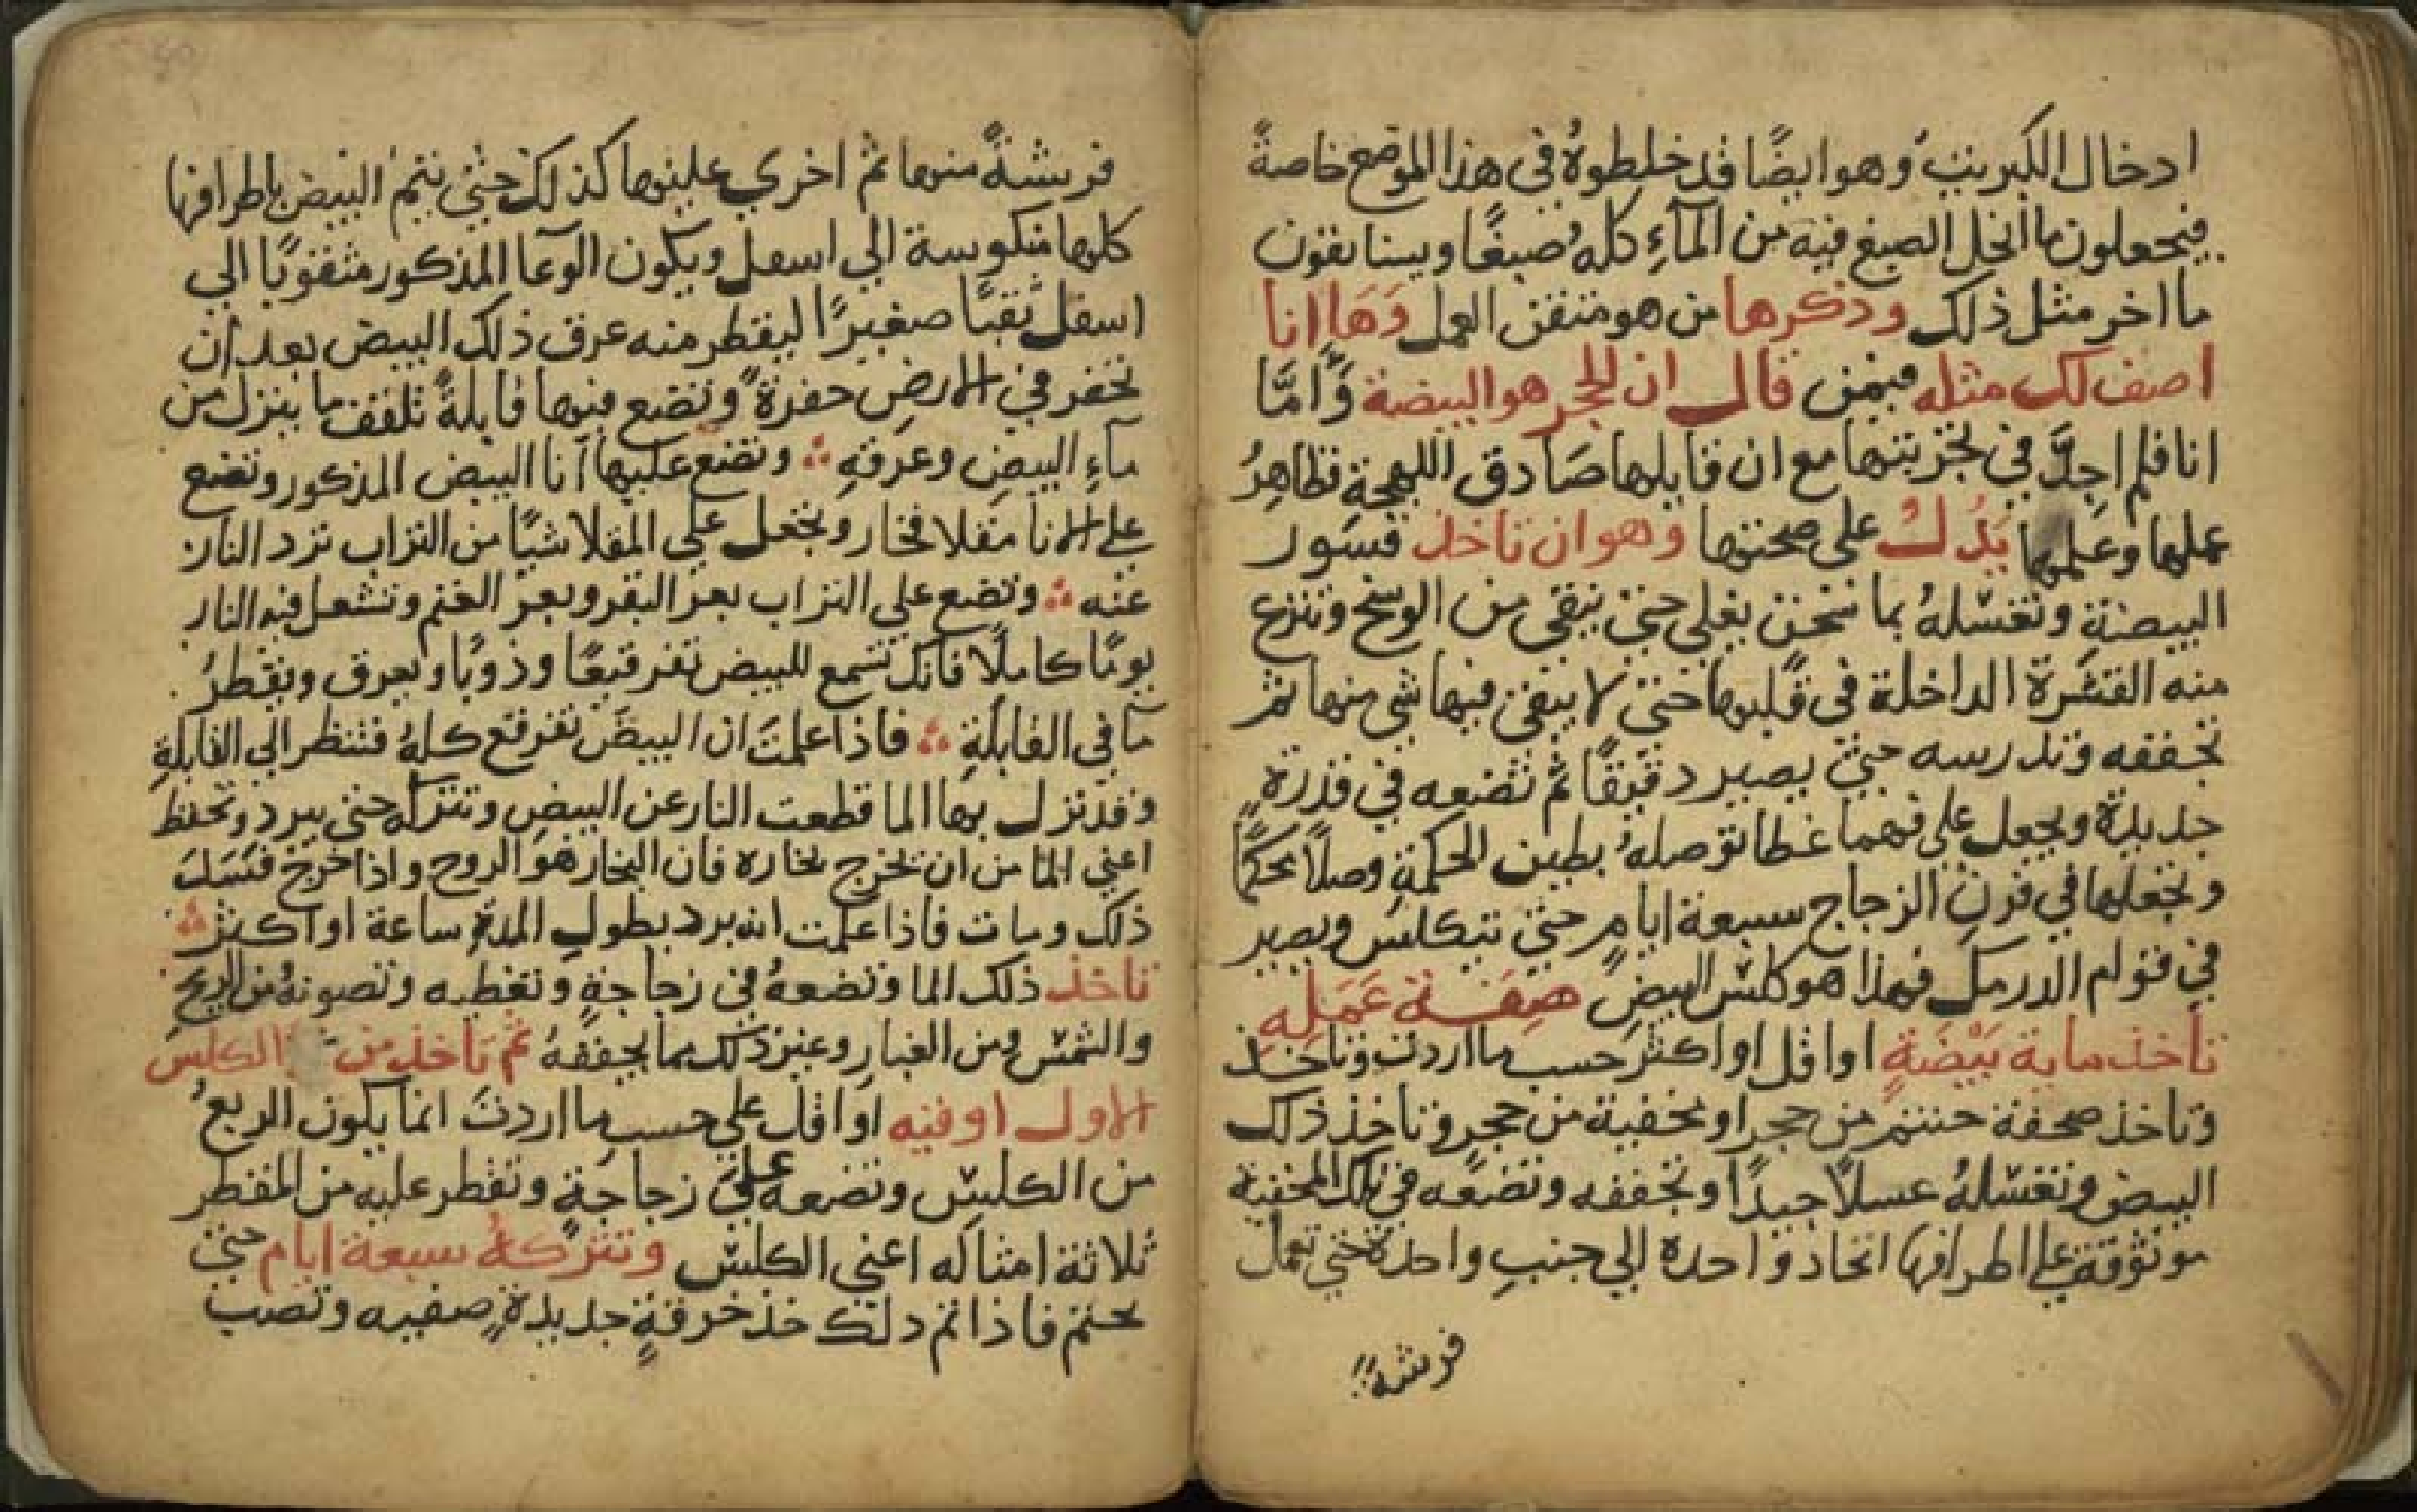 ادخال الكبريت وهو ايضًا قد خلطوهُ في هذا الموضع خاصةً
فيجعلون ما انحل الصبغ فيه من المآءِ كلهُ صبغًا ويستانفون
ما اخر مثل ذلك وذكرها من هو متقن العمل وَهَا انا
اصف لك مثله فيمن قال ان الحجر هو البيضة وَامَّا
انا فلم اجدَّ في تجربتها مع ان قايلها صَادق اللهجة فظاهرُ
عملها وعلمها يَدُلكُ على صحتها وهو ان تاخذ قسور
البيضة وتغسلهُ بما سخن يغلي حتى ينقي من الوسخ وتنزع
منه القشرة الداخلة في قلبها حتى لا يبقى فيها شي منها ثم
تجففه وتدرسه حتى يصير دقيقًا ثم تضعه في قدرة
جديدة ويجعل على فمهما غطا توصلهُ بطين الحكمة وصلًا محكمًا
وتجعلها في فرن الزجاج سبعة ايامٍ حتى تتكلس ويصير
في قوام الدرمك فهذا هو كلس البيض صِفَة عَمَلِهِ
تاخذ ماية بَيْضَةٍ او اقل او اكثر حسب ما اردت وتاخذ
وتاخذ صحفة حنتم من حجر او مخفية من حجر وتاخذ ذلك
البيض وتغسلهُ عسلًا جيدًا وتجففه وتضعه في تلك المخفية
موثوقة على اطرافها اتحاد واحدة الي جنبِ واحدة حتى تعمل
فرشةً
فرشةً منها ثم اخري عليها كذلك حتي يتم البيض باطرافها
كلها منكوسة الي اسفل ويكون الوعا المذكور مثقوبًا الي
اسفل ثقبًا صغيرًا ليقطر منه عرق ذلك البيض بعد ان
تحفر في الارض حفرةً وتضع فيها قابلةً تلقف ما ينزل من
مآءِ البيض وعرقهِ وتضع عليها آنا البيض المذكور وتضع
على الانا مقلا فخار وتجعل على المقلا شيًا من التراب ترد النار
عنه وتضع على التراب بعر البقر وبعر الغنم وتشعل فيه النار
يومًا كاملًا فانك تسمع للبيض تفرقيعًا وذوبًا ويعرق ويقطرُ
ما في القابلةِ فاذا علمتَ ان البيضَ تفرقع كلهُ فتنظر الي القابلةِ
وقد نزل بها الما قطعت النار عن البيضِ وتتركه حتى يبرد وتحفظ
اعني الما من ان يخرج بخاره فان البخار هو الروح واذا خرج فَسَدَ
ذلك ومات فاذا علمت انه برد بطول المدةِ ساعة او اكثر
تاخذ ذلك الما وتضعهُ في زجاجةٍ وتغطيه وتصونهُ من الريح
والشمس ومن الغبارِ وغير ذلك مما يجففهُ ثم تاخذ من الكلس
الاول اوقيه او اقل على حسب ما اردتَ انما يكون الربعُ
من الكلس وتضعه في زجاجةٍ وتقطر عليه من المقطر
ثلاثة امثاله اعني الكلس وتتركهُ سبعة ايام حتى
يختم فاذا تم دلك خذ خرقةٍ جديدةٍ صفيه وتصب